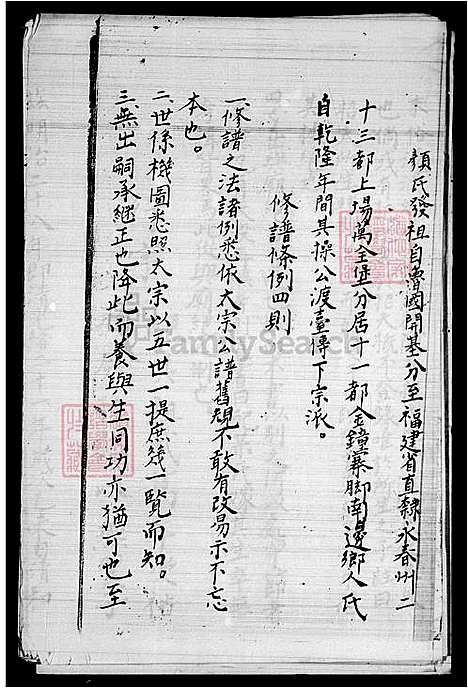 顏氏發祖自魯國開基分至福建省直隸永春州二
十三都上場萬全堡分居十一都金鐘寨脚南邊鄉人氏
自乾隆年間其操公渡臺傳下宗派。
修譜條例四則
一、修譜之法諸例悉依大宗公譜舊規不敢有改易示不忘
本也。
二、世係機圖悉照大宗以五世一提庶幾一覽而知。
三、無出嗣承継正也降此而養與生同功亦猶可也至
FamilySearch